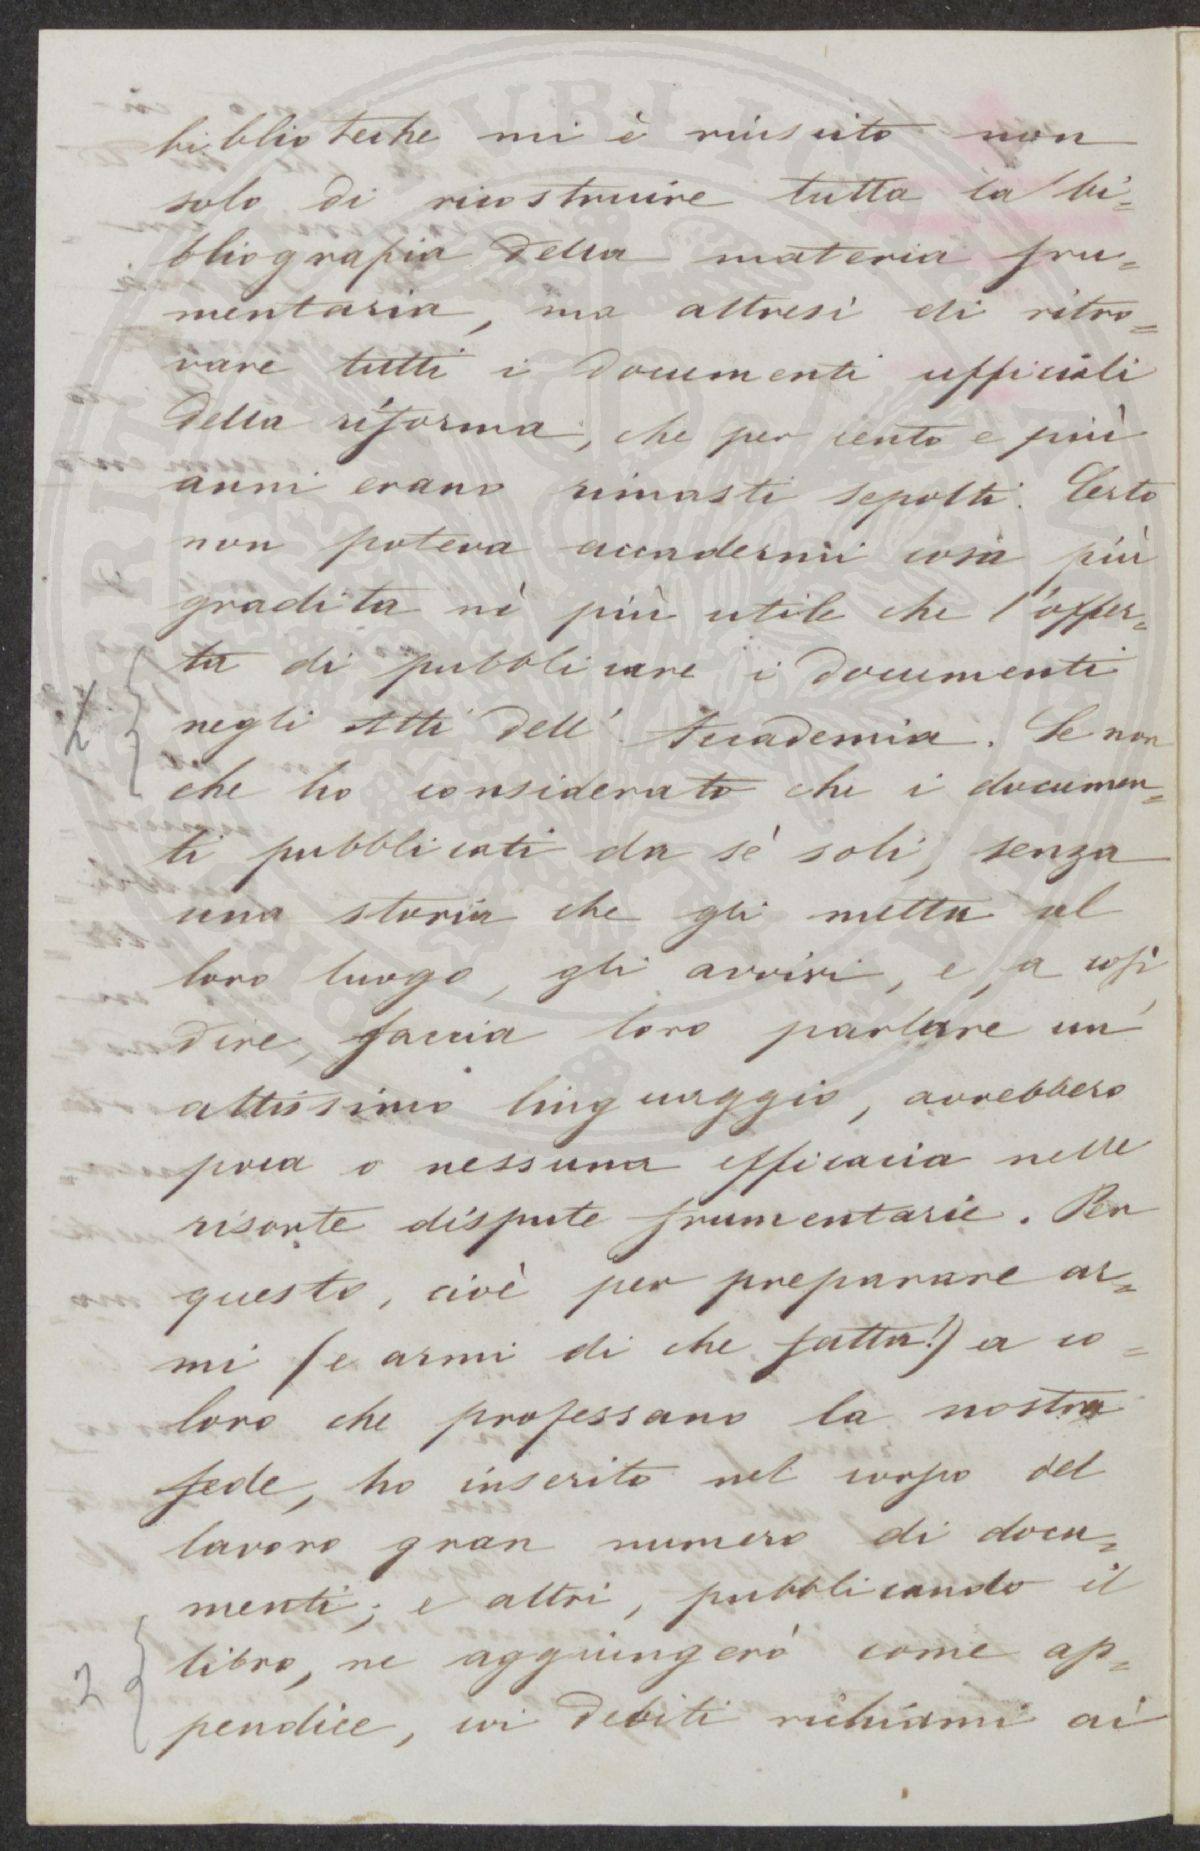 biblioteche mi è riuscito non
solo di ricostruire tutta la bi=
bliografia della materia fru=
mentaria, ma altresì di ritro=
vare tutti i documenti ufficiali
della riforma, che per cento e più
anni erano rimasti sepolti. Certo
non poteva accadermi cosa più
gradita nè più utile che l'offer=
ta di pubblicare i documenti
negli Atti dell'Accademia. Se non
che ho considerato che i documen=
ti pubblicati da sè soli, senza
una storia che gli metta al
loro luogo, gli avvivi, e, a così
dire, faccia loro parlare un'
altissimo linguaggio, avrebbero
poca o nessuna efficacia nelle
risorte dispute frumentarie. Per
questo, cioè per preparare ar=
mi (e armi di che fatta!) a co=
loro che professano la nostra
fede, ho inserito nel corpo del
lavoro gran numero di docu=
menti; e altri, pubblicando il
libro, ne aggiungerò come ap=
2
pendice, coi debiti richiami ai